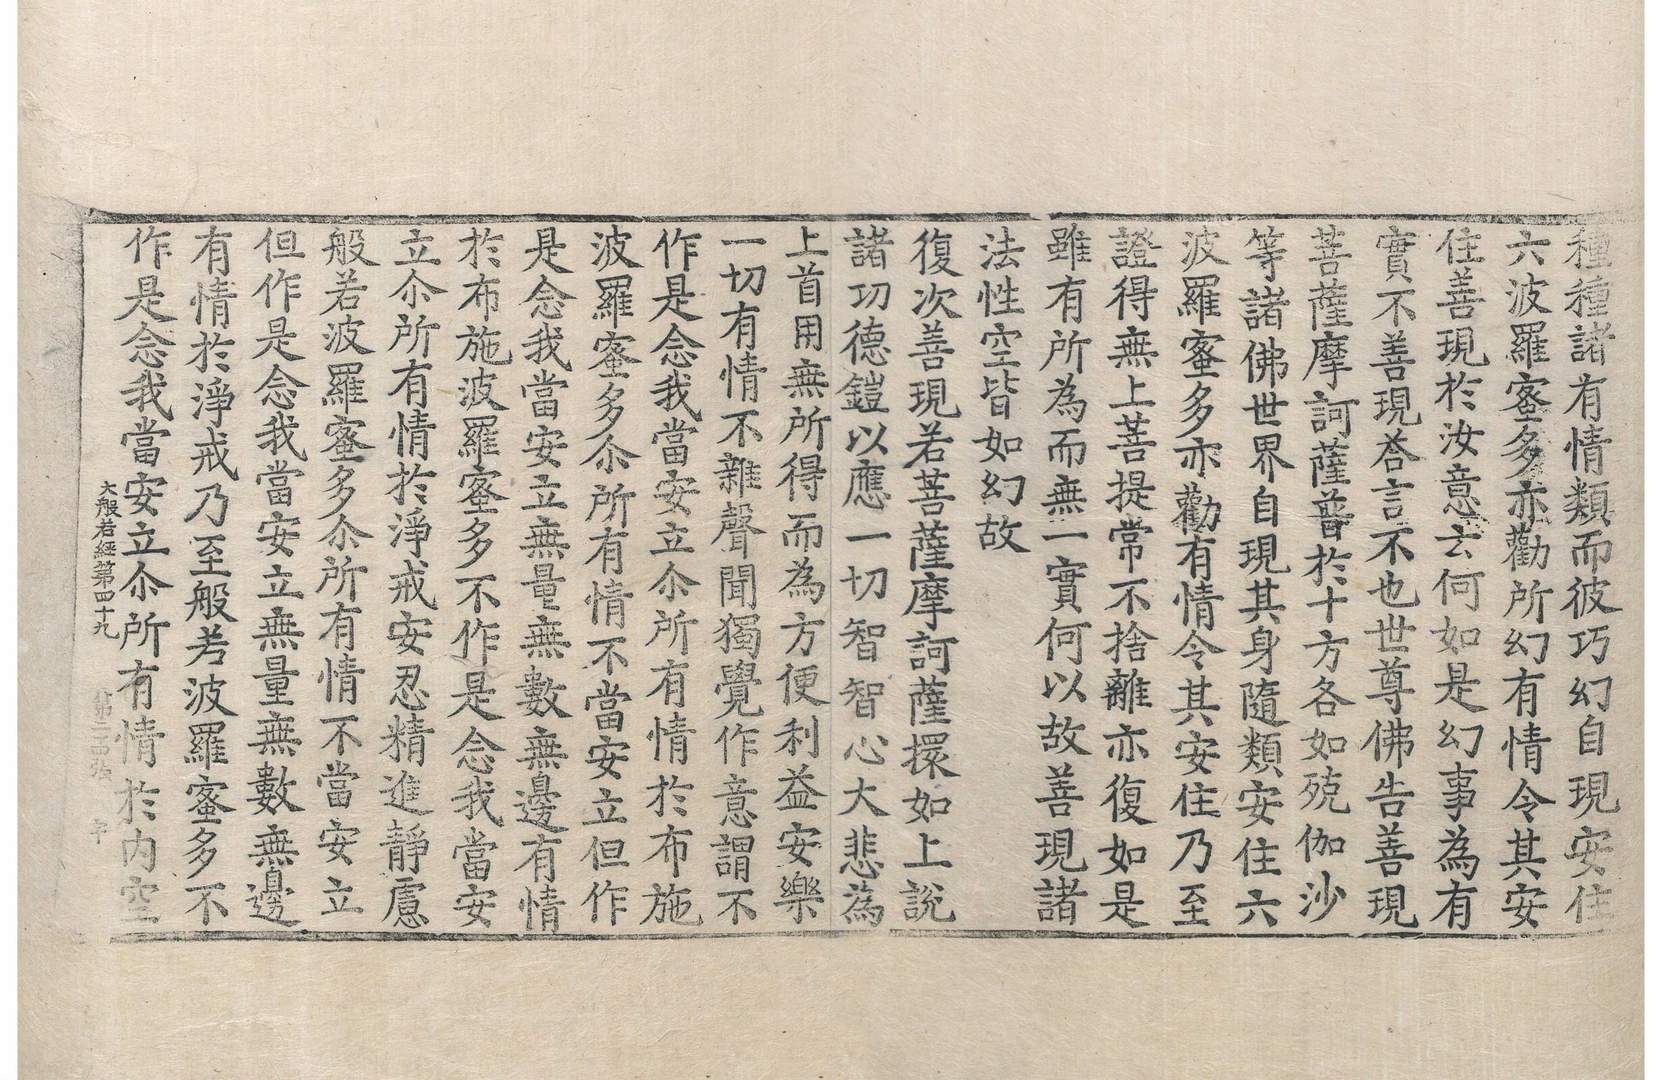 種種諸有情類而彼巧幻自現安住
六波羅蜜多亦勸所幻有情令其安
住善現於汝意云何如是幻事為有
實不善現荅言不也世尊佛告善現
菩薩摩訶薩普於十方各如殑伽沙
等諸佛世界自現其身隨類安住六
波羅蜜多亦勸有情令其安住乃至
證得無上菩提常不捨離亦復如是
雖有所為而無一實何以故善現諸
法性空皆如幻故
復次善現若菩薩摩訶薩擐如上說
諸功德鎧以應一切智智心大悲為
上首用無所得而為方便利益安樂
一切有情不雜聲聞獨覺作意謂不
作是念我當安立尒所有情於布施
波羅蜜多尒所有情不當安立但作
是念我當安立無量無數無邊有情
於布施波羅蜜多不作是念我當安
立尒所有情於淨戒安忍精進靜慮
般若波羅蜜多尒所有情不當安立
但作是念我當安立無量無數無邊
有情於淨戒乃至般若波羅蜜多不
作是念我當安立尒所有情於內空
大般若經第四十九 第二十四張